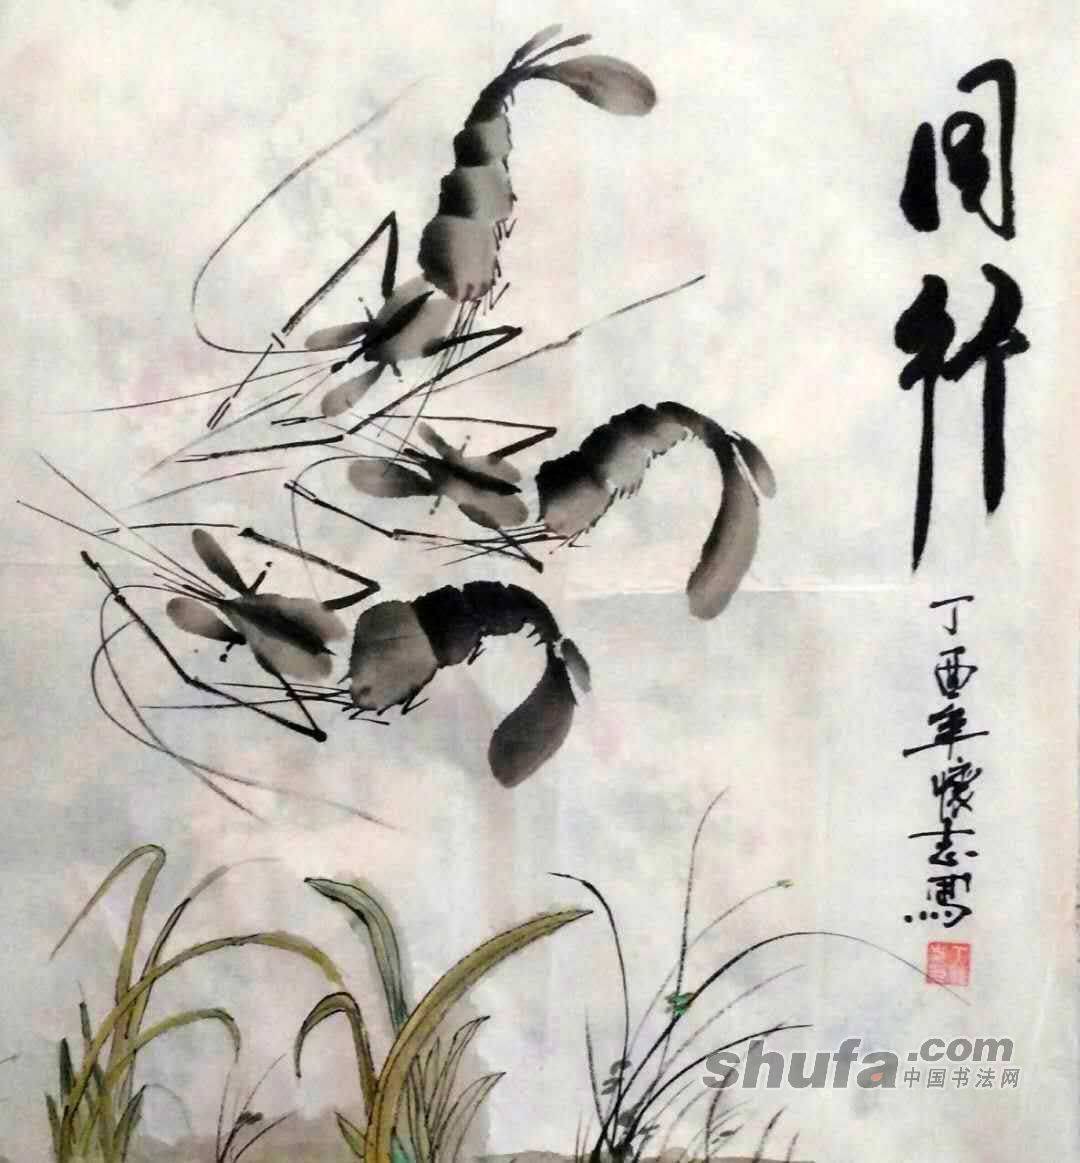 同行
丁酉年懷志寫
shufa.com
中国书法网